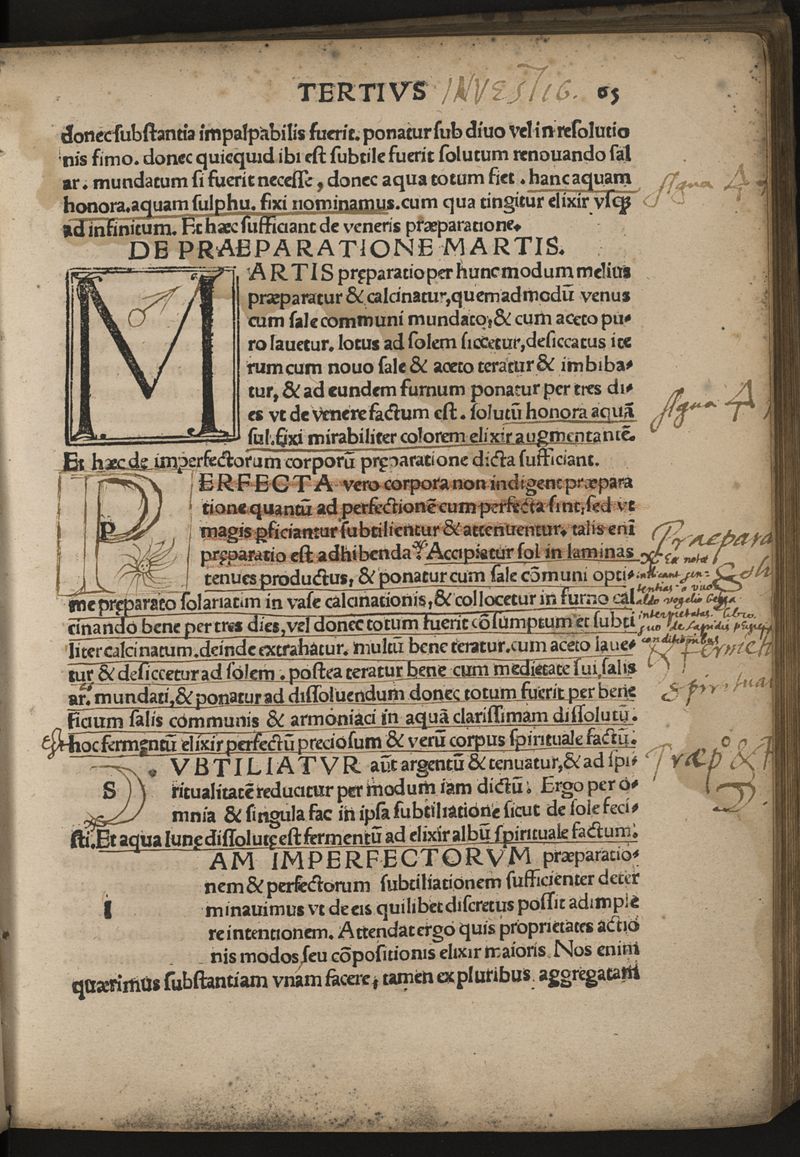 TERTIVS INVESTIG. 65
donec substantia impalpabilis fuerit. ponatur sub diuo vel in resolutio
nis fimo. donec quicquid ibi est subtile fuerit solutum renouando sal
ar. mundatum si fuerit necesse, donec aqua totum fiet. hanc aquam
honora. aquam sulphu. fixi nominamus. cum qua tingitur elixir vsqꝫ
ad infinitum. Et hæc sufficiant de veneris præparatione.
DE PRAEPARATIONE MARTIS.
MARTIS pręparatio per hunc modum melius
præparatur & calcinatur, quemadmodū venus
cum sale communi mundato, & cum aceto pu-
ro lauetur. lotus ad solem siccetur, desiccatus ite
rum cum nouo sale & aceto teratur & imbiba-
tur, & ad eundem furnum ponatur per tres di-
es vt de venere factum est. solutū honora aquā
sul. fixi mirabiliter colorem elixir augmentantē.
Et hæc de imperfectorum corporū pręparatione dicta sufficiant.
PERFECTA vero corpora non indigent præpara
tione quantū ad perfectionē cum perfecta sint, sed vt
magis ꝑficiantur subtilientur & attenuentur. talis enī
pręparatio est adhibenda. Accipiatur sol in laminas
tenues productus, & ponatur cum sale cōmuni opti-
me pręparato solariatim in vase calcinationis, & collocetur in furno cal
cinando bene per tres dies, vel donec totum fuerit cōsumptum et subti
liter calcinatum. deinde extrahatur. multū bene teratur. cum aceto laue-
tur & desiccetur ad solem. postea teratur bene cum medietate sui, salis
ar. mundati, & ponatur ad dissoluendum donec totum fuerit per bene
ficium salis communis & armoniaci in aquā clarissimam dissolutū.
Est hoc fermentū elixir perfectū preciosum & verū corpus spirituale factū.
SVBTILIATVR aūt argentū & tenuatur, & ad spi-
ritualitatē reducitur per modum iam dictū. Ergo per o-
mnia & singula fac in ipsa subtiliatione sicut de sole feci-
sti. Et aqua lunę dissolutę est fermentū ad elixir albū spirituale factum.
IAM IMPERFECTORVM præparatio-
nem & perfectorum subtiliationem sufficienter deter
minauimus vt de eis quilibet discretus possit adimple
re intentionem. Attendat ergo quis proprietates actio
nis modos seu cōpositionis elixir maioris. Nos enim
quærimus substantiam vnam facere, tamen ex pluribus aggregatam
signa
signa
Præpara
Soli
& ferment
spiritual
Præpº &